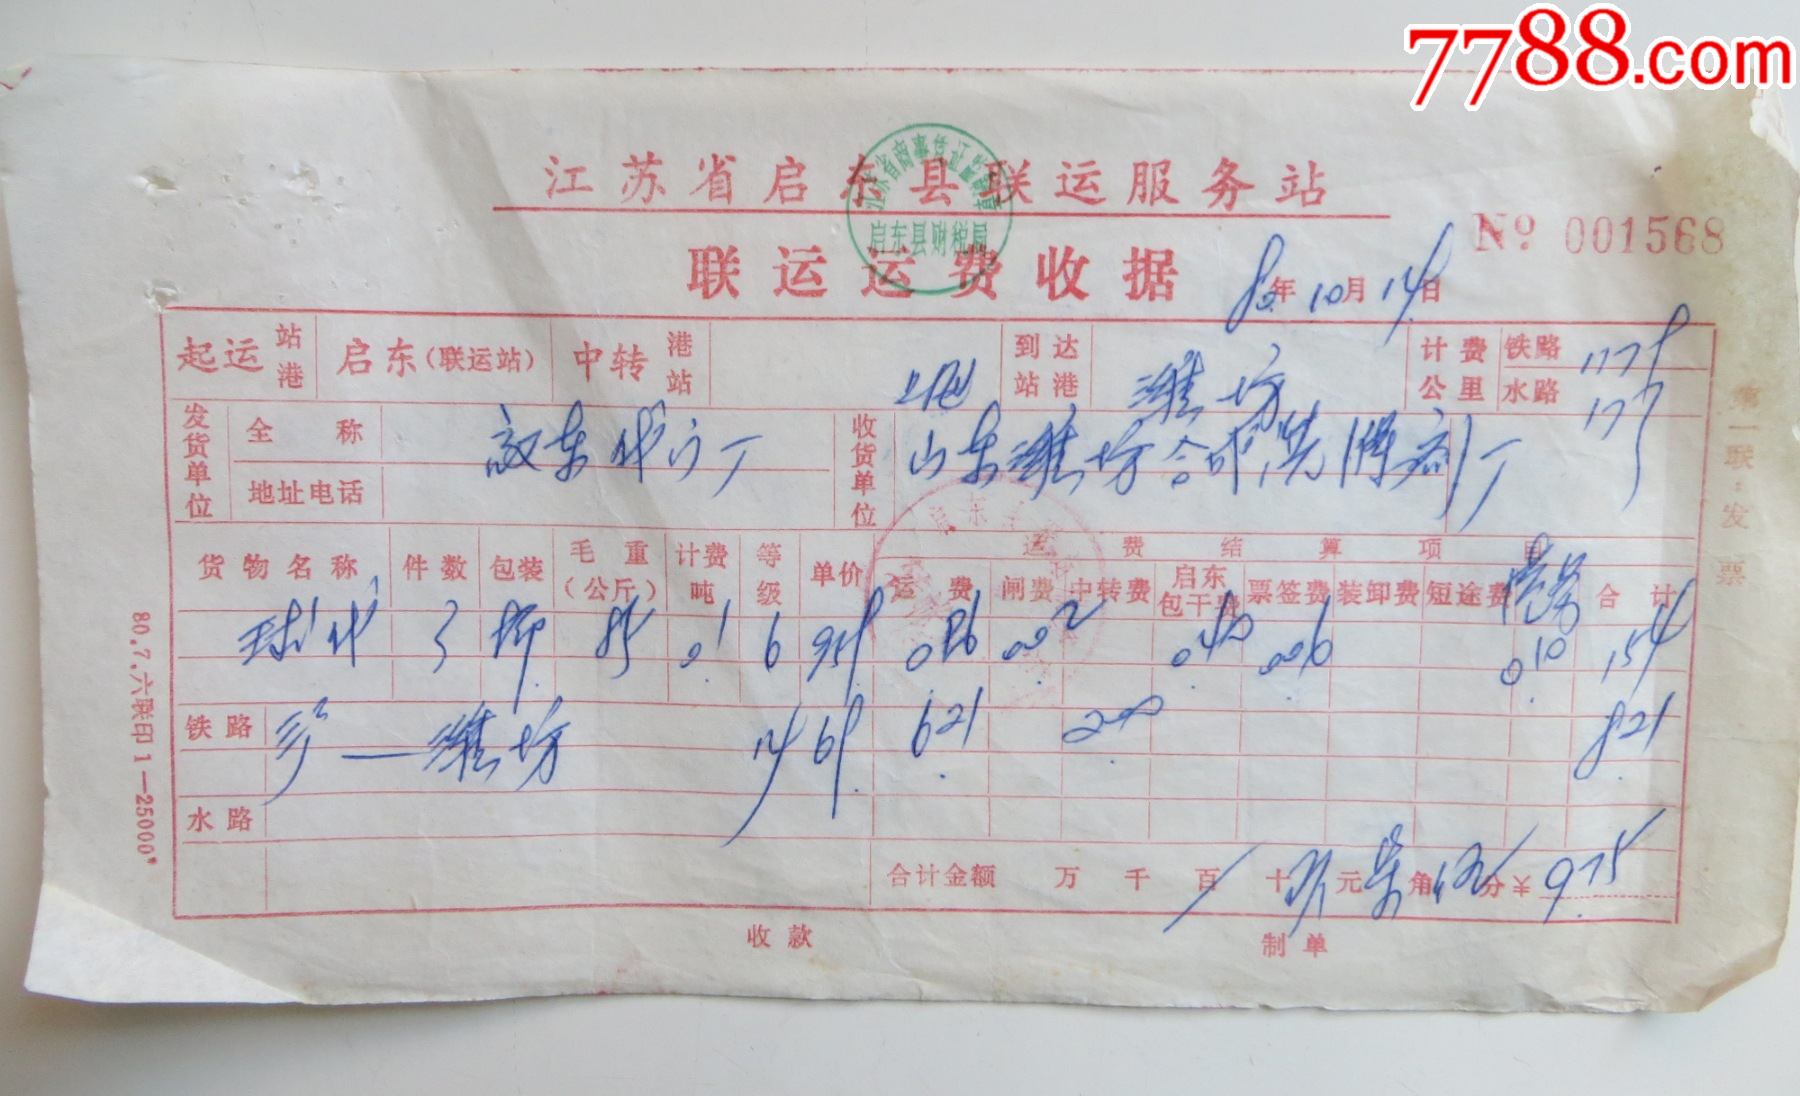 7788.com
江苏省启东县联运服务站
江苏省商事凭证监制章
启东县财税局
联运运费收据
№ 001568
80年10月14日
起运站港 启东(联运站) 中转港站 到达站港 潍坊 计费公里 铁路
水路 177
发货单位 全称 收货单位 山东潍坊合成洗涤剂厂
地址电话
第一联:发票
运费结算项目
货物名称 件数 包装 毛重(公斤) 计费吨 等级 单价 运费 闸费 中转费 启东包干费 票签费 装卸费 短途费 合计
球 3 85 0.1 6 0.02 0.40 0.06 0.10 1.54
铁路 — 潍坊 14 6.21 2.00 8.21
水路
合计金额 万 千 百 十 玖元柒角伍分 ¥9.75
收款 制单
80.7.六联印1—25000"